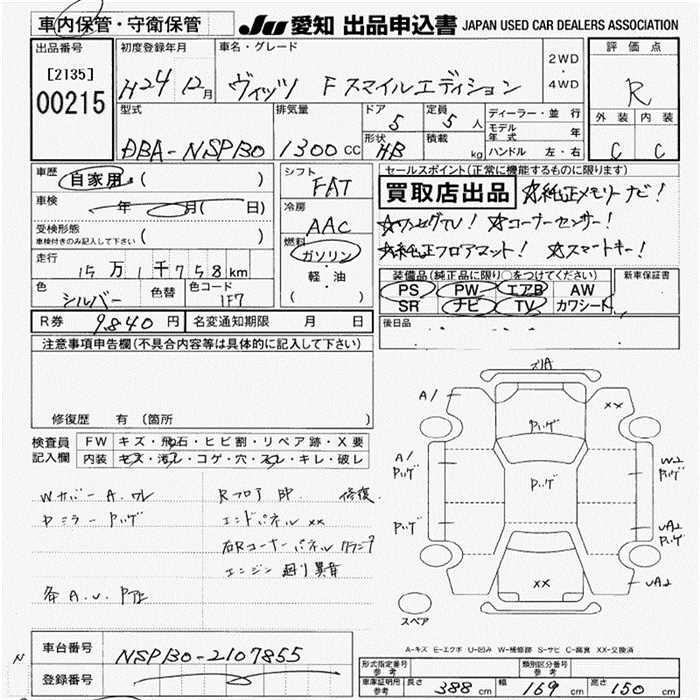 車内保管・守衛保管
JU 愛知 出品申込書 JAPAN USED CAR DEALERS ASSOCIATION
出品番号 初度登録年月 車名・グレード 評価点
[2135]
00215
H24 12月 ヴィッツ Fスマイルエディション 2WD・4WD R
型式 排気量 ドア 定員 ディーラー・並行 外装 内装
5 5人
形状 積載 モデル年式
DBA-NSP130 1300CC HB kg ハンドル 左・右 C C
車歴 自家用( ) シフト FAT
車検 年 月( 日) 冷房 AAC
受検形態
車検付きのみ記入して下さい ( )
燃料 ガソリン・軽・油 ( )
走行 15万1千758km
色 シルバー 色替 色コード 1F7
R券 9,840円 名変通知期限 月 日
セールスポイント(正常に機能するものに限ります)
買取店出品 ☆純正メモリナビ!
☆ワンセグTV! ☆コーナーセンサー!
☆純正フロアマット! ☆スマートキー!
装備品(純正品に限り○をつけてください) 新車保証書
PS PW エアB AW
SR ナビ TV カワシート
後日品
注意事項申告欄(不具合内容等は具体的に記入して下さい)
修復歴 有(箇所 )
検査員記入欄 FW キズ・飛石・ヒビ割・リペア跡・X要
内装 キズ・汚レ・コゲ・穴・スレ・キレ・破レ
Wカバー A. ワレ
Rフロア 修復
ヤミラー Pハゲ
エンドパネル XX
右Rコーナーパネル
エンジン 廻り異音
各A.U.
ズリA
A1 XX
Pハゲ
A1 Pハゲ
Pハゲ
W2 Pハゲ
Pハゲ
UA2 Pハゲ
XX
UA2
スペア
A-キズ E-エクボ U-凹み W-補修跡 S-サビ C-腐食 XX-交換済
車台番号 NSP130-2107855
登録番号
形式指定番号 参考 類別区分番号 参考
車庫証明用 参考 長さ 388cm 幅 169cm 高さ 150cm